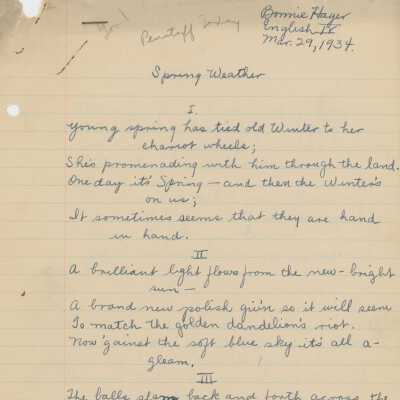 Bonnie Hager
English IV
Mar. 29, 1934.
Spring Weather
I.
Young spring has tied old Winter to her
chariot wheels;
She's promenading with him through the land.
One day it's Spring — and then the Winter's
on us;
It sometimes seems that they are hand
in hand.
II
A brilliant light flows from the new-bright
sun —
A brand new polish giv'n so it will seem
To match the golden dandelion's riot.
Now 'gainst the soft blue sky it's all a-
gleam.
III
The balls slam back and forth across the